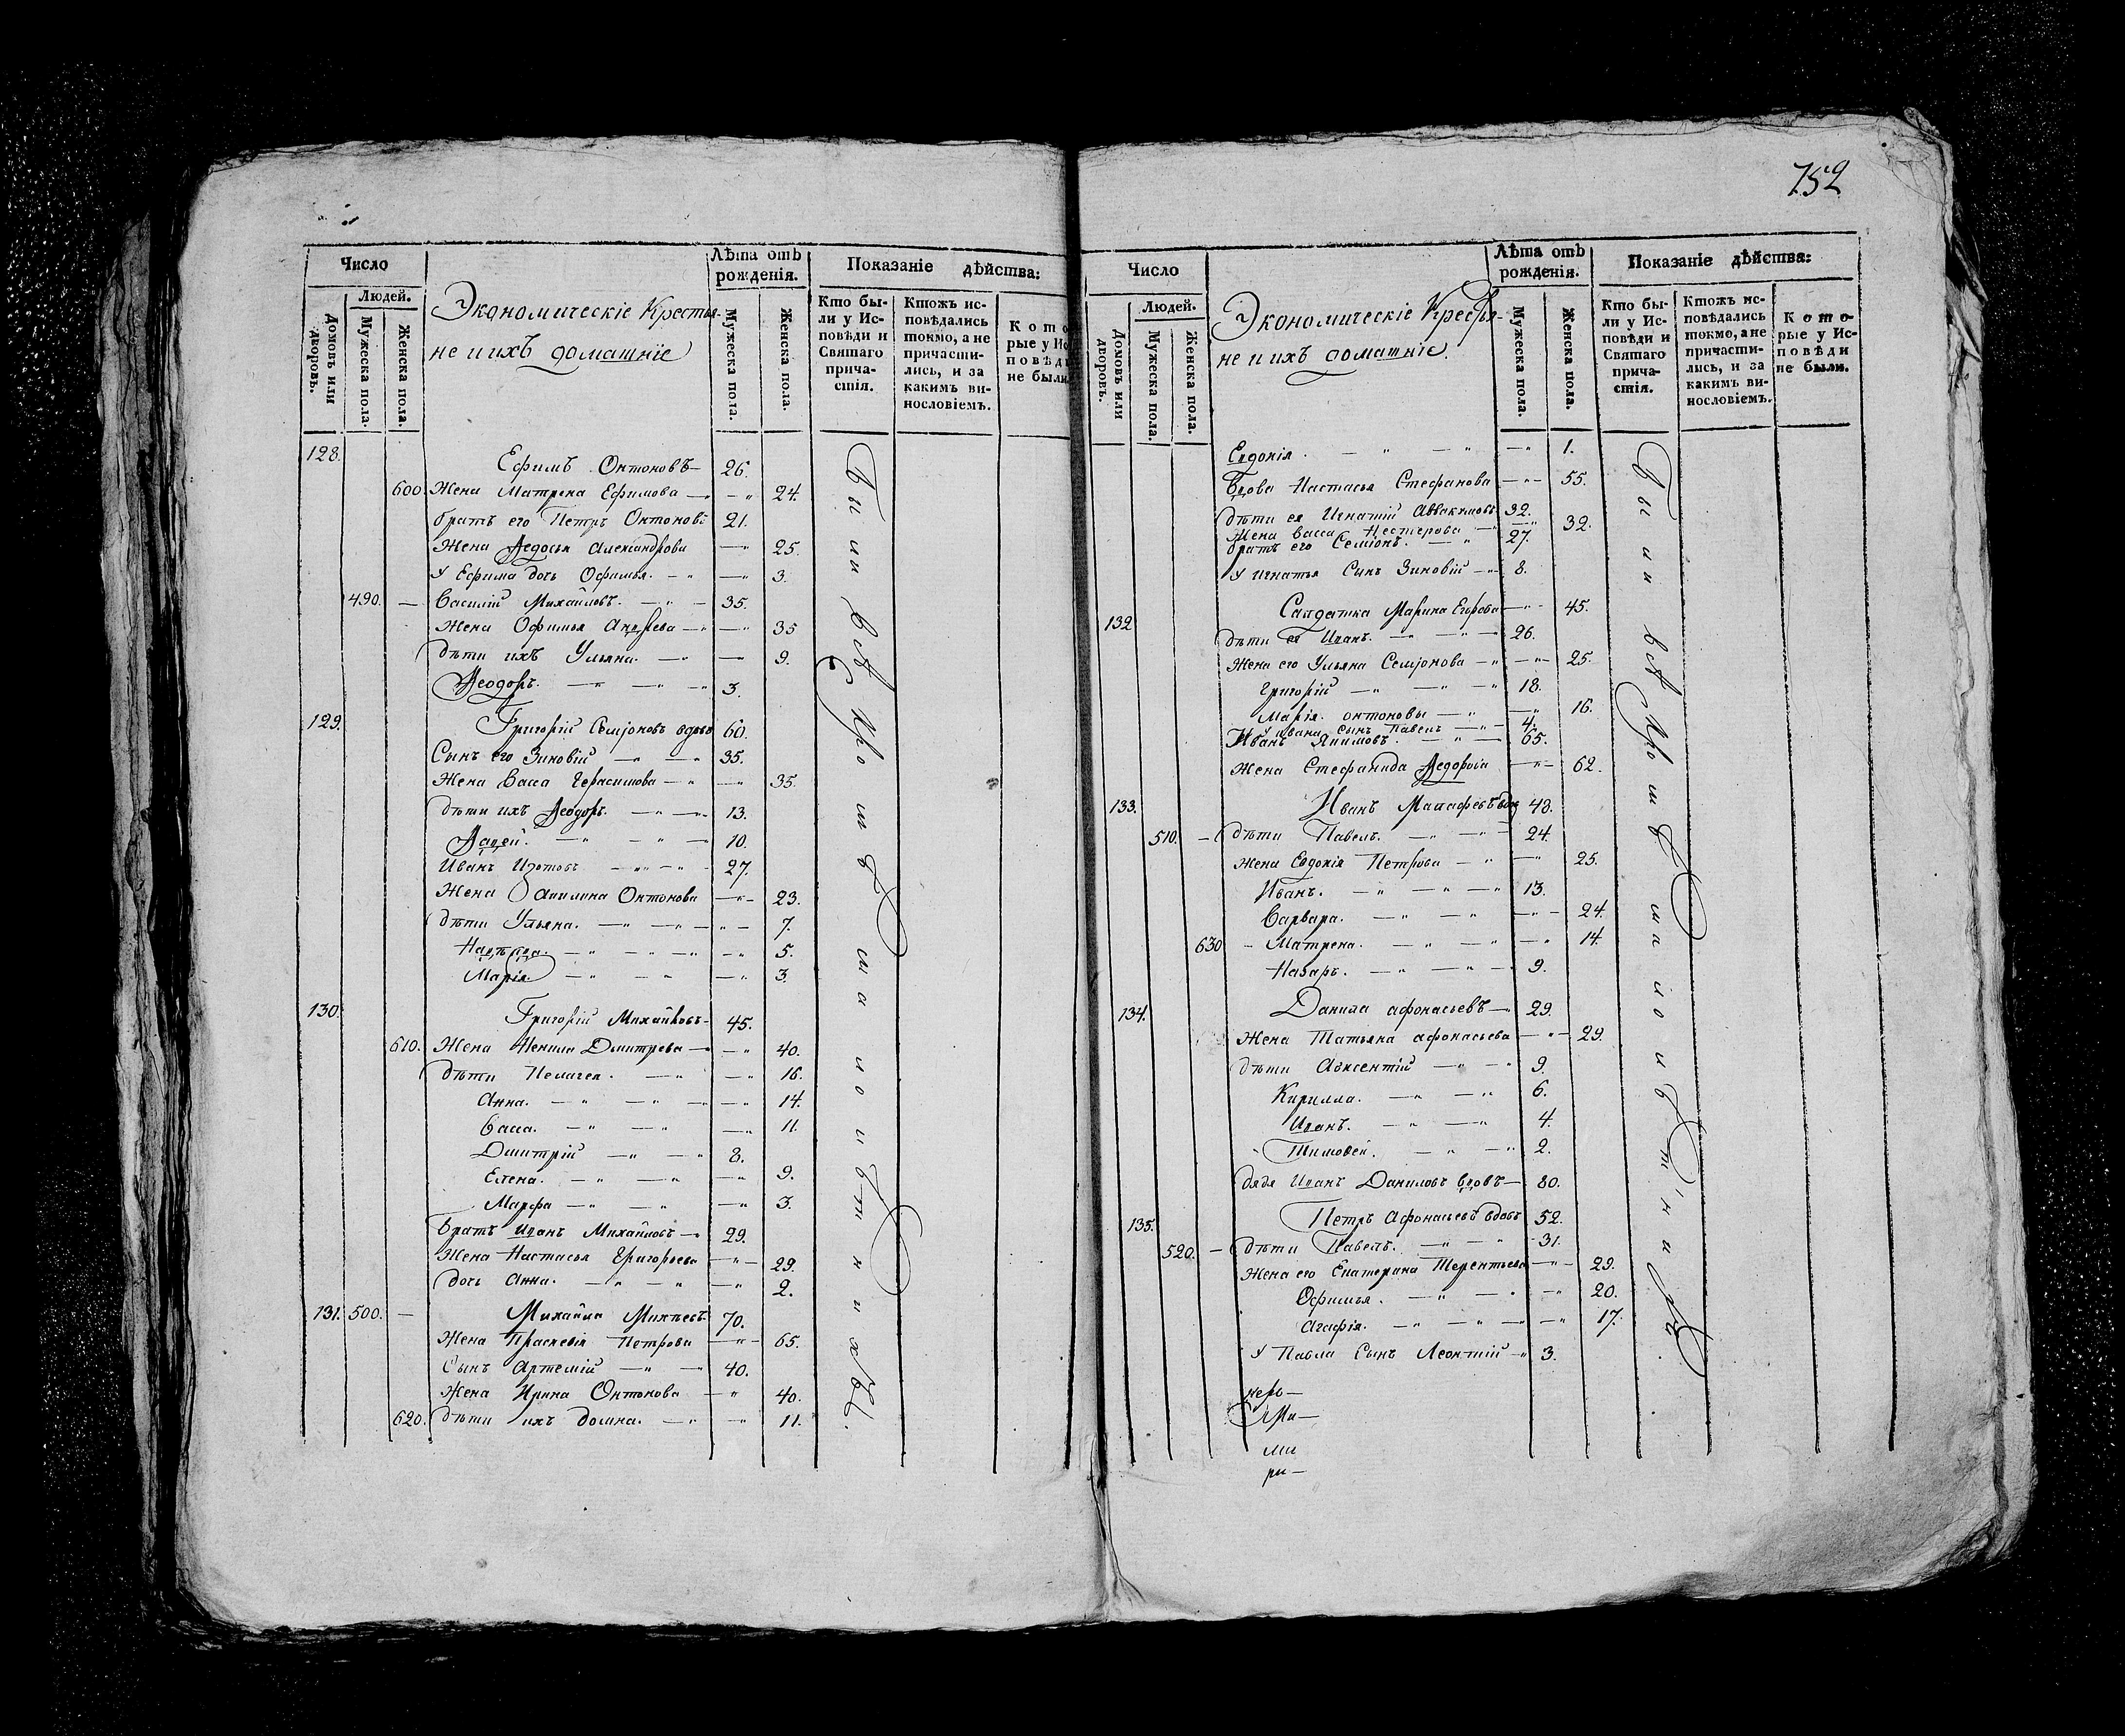 752
Число
Лѣта отъ рожденія.
Показаніе дѣйства:
Людей.
Домовъ или дворовъ.
Мужеска пола.
Женска пола.
Экономическіе Крестья-
не и ихъ домашніе
Мужеска пола.
Женска пола.
Кто бы-
ли у Ис-
повѣди и
Святаго
прича-
стія.
Ктожъ ис-
повѣдались
токмо, а не
причасти-
лись, и за
какимъ ви-
нословіемъ.
Кото
рые у Ис
повѣд
не были
128. Ефимъ Онтоновъ — 26.
600. Жена Матрена Ефимова — 24.
братъ его Петръ Онтоновъ 21.
Жена Ѳедосья Александрова — 25.
у Ефима дочь Офимья. — 3.
490. — Василій Михайловъ. — 35.
Жена Офимья Андрева — 35
дѣти ихъ Ульяна. — 9.
Ѳеодоръ. — 3.
129. Григорій Семіоновъ вдовъ 60.
Сынъ его Зиновій — 35.
Жена Васса Герасимова — 35.
дѣти ихъ Ѳеодоръ. — 13.
10.
Иванъ Изотовъ — 27.
Жена Акилина Онтонова — 23.
дѣти Ульяна. — 7.
5.
Марія — 3.
130. Григорій Михайловъ — 45.
610. Жена Ненила Дмитрева — 40.
дѣти Пелагея. — 16.
Анна. — 14.
Васса. — 11.
Дмитрій — 8.
Елена. — 9.
Марфа — 3.
братъ Иванъ Михайловъ — 29.
Жена Настасья Григорьева — 29.
дочь Анна. — 2.
131. 500. — Михайла Михѣевъ 70.
Жена Праскевія Петрова — 65.
Сынъ Артемій — 40.
Жена Ирина Онтонова — 40.
620. дѣти ихъ Домна. — 11.
Число
Лѣта отъ рожденія.
Показаніе дѣйства:
Людей.
Домовъ или дворовъ.
Мужеска пола.
Женска пола.
Экономическіе Крестья-
не и ихъ домашніе.
Мужеска пола.
Женска пола.
Кто бы-
ли у Ис-
повѣди и
Святаго
прича-
стія.
Ктожъ ис-
повѣдались
токмо, а не
причасти-
лись, и за
какимъ ви-
нословіемъ.
Кото-
рые у Ис-
повѣди
не были.
Евдокія. — 1.
Вдова Настасья Стефанова — 55.
дѣти ея Игнатій Аввакумовъ 32.
Жена Васса Нестерова — 32.
братъ его Семіонъ. — 27.
у Игнатья Сынъ Зиновій — 8.
132 Салдатка Марина Егорова — 45.
дѣти ея Иванъ. — 26.
Жена его Ульяна Семіонова — 25.
Григорій — 18.
Марія. онтоновы — 16.
у ивана сынъ Павелъ — 4.
Иванъ Якимовъ. — 65.
Жена Стефанида Ѳедорова — 62.
133. Иванъ 48.
510. — дѣти Павелъ. — 24.
Жена Евдокія Петрова — 25.
Иванъ. — 13.
Варвара. — 24.
630 — Матрена. — 14.
Назаръ. — 9.
134. Данила афонасьевъ — 29.
Жена Татьяна афонасьева — 29.
дѣти Авксентій — 9.
Кирилла. — 6.
Иванъ. — 4.
Тимоѳей. — 2.
дядя Иванъ Даниловъ вдовъ — 80.
135. Петръ Афонасьевъ вдовъ 52.
520. — дѣти Павелъ. — 31.
Жена его Екатерина Терентьева — 29.
Офимья. — 20.
Агафія. — 17.
у Павла Сынъ Леонтій — 3.